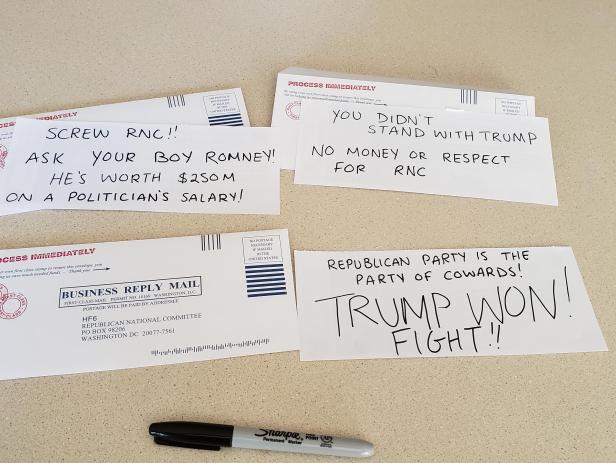 PROCESS IMMEDIATELY
SCREW RNC!!
ASK YOUR BOY ROMNEY!
HE'S WORTH $250M
ON A POLITICIAN'S SALARY!
PROCESS IMMEDIATELY
YOU DIDN'T
STAND WITH TRUMP
NO MONEY OR RESPECT
FOR RNC
PROCESS IMMEDIATELY
NO POSTAGE
NECESSARY
IF MAILED
IN THE
UNITED STATES
BUSINESS REPLY MAIL
FIRST-CLASS MAIL PERMIT NO. WASHINGTON, D.C.
POSTAGE WILL BE PAID BY ADDRESSEE
HF6
REPUBLICAN NATIONAL COMMITTEE
PO BOX 98206
WASHINGTON DC 20077-7561
REPUBLICAN PARTY IS THE
PARTY OF COWARDS!
TRUMP WON!
FIGHT!!
Sharpie
Permanent Marker